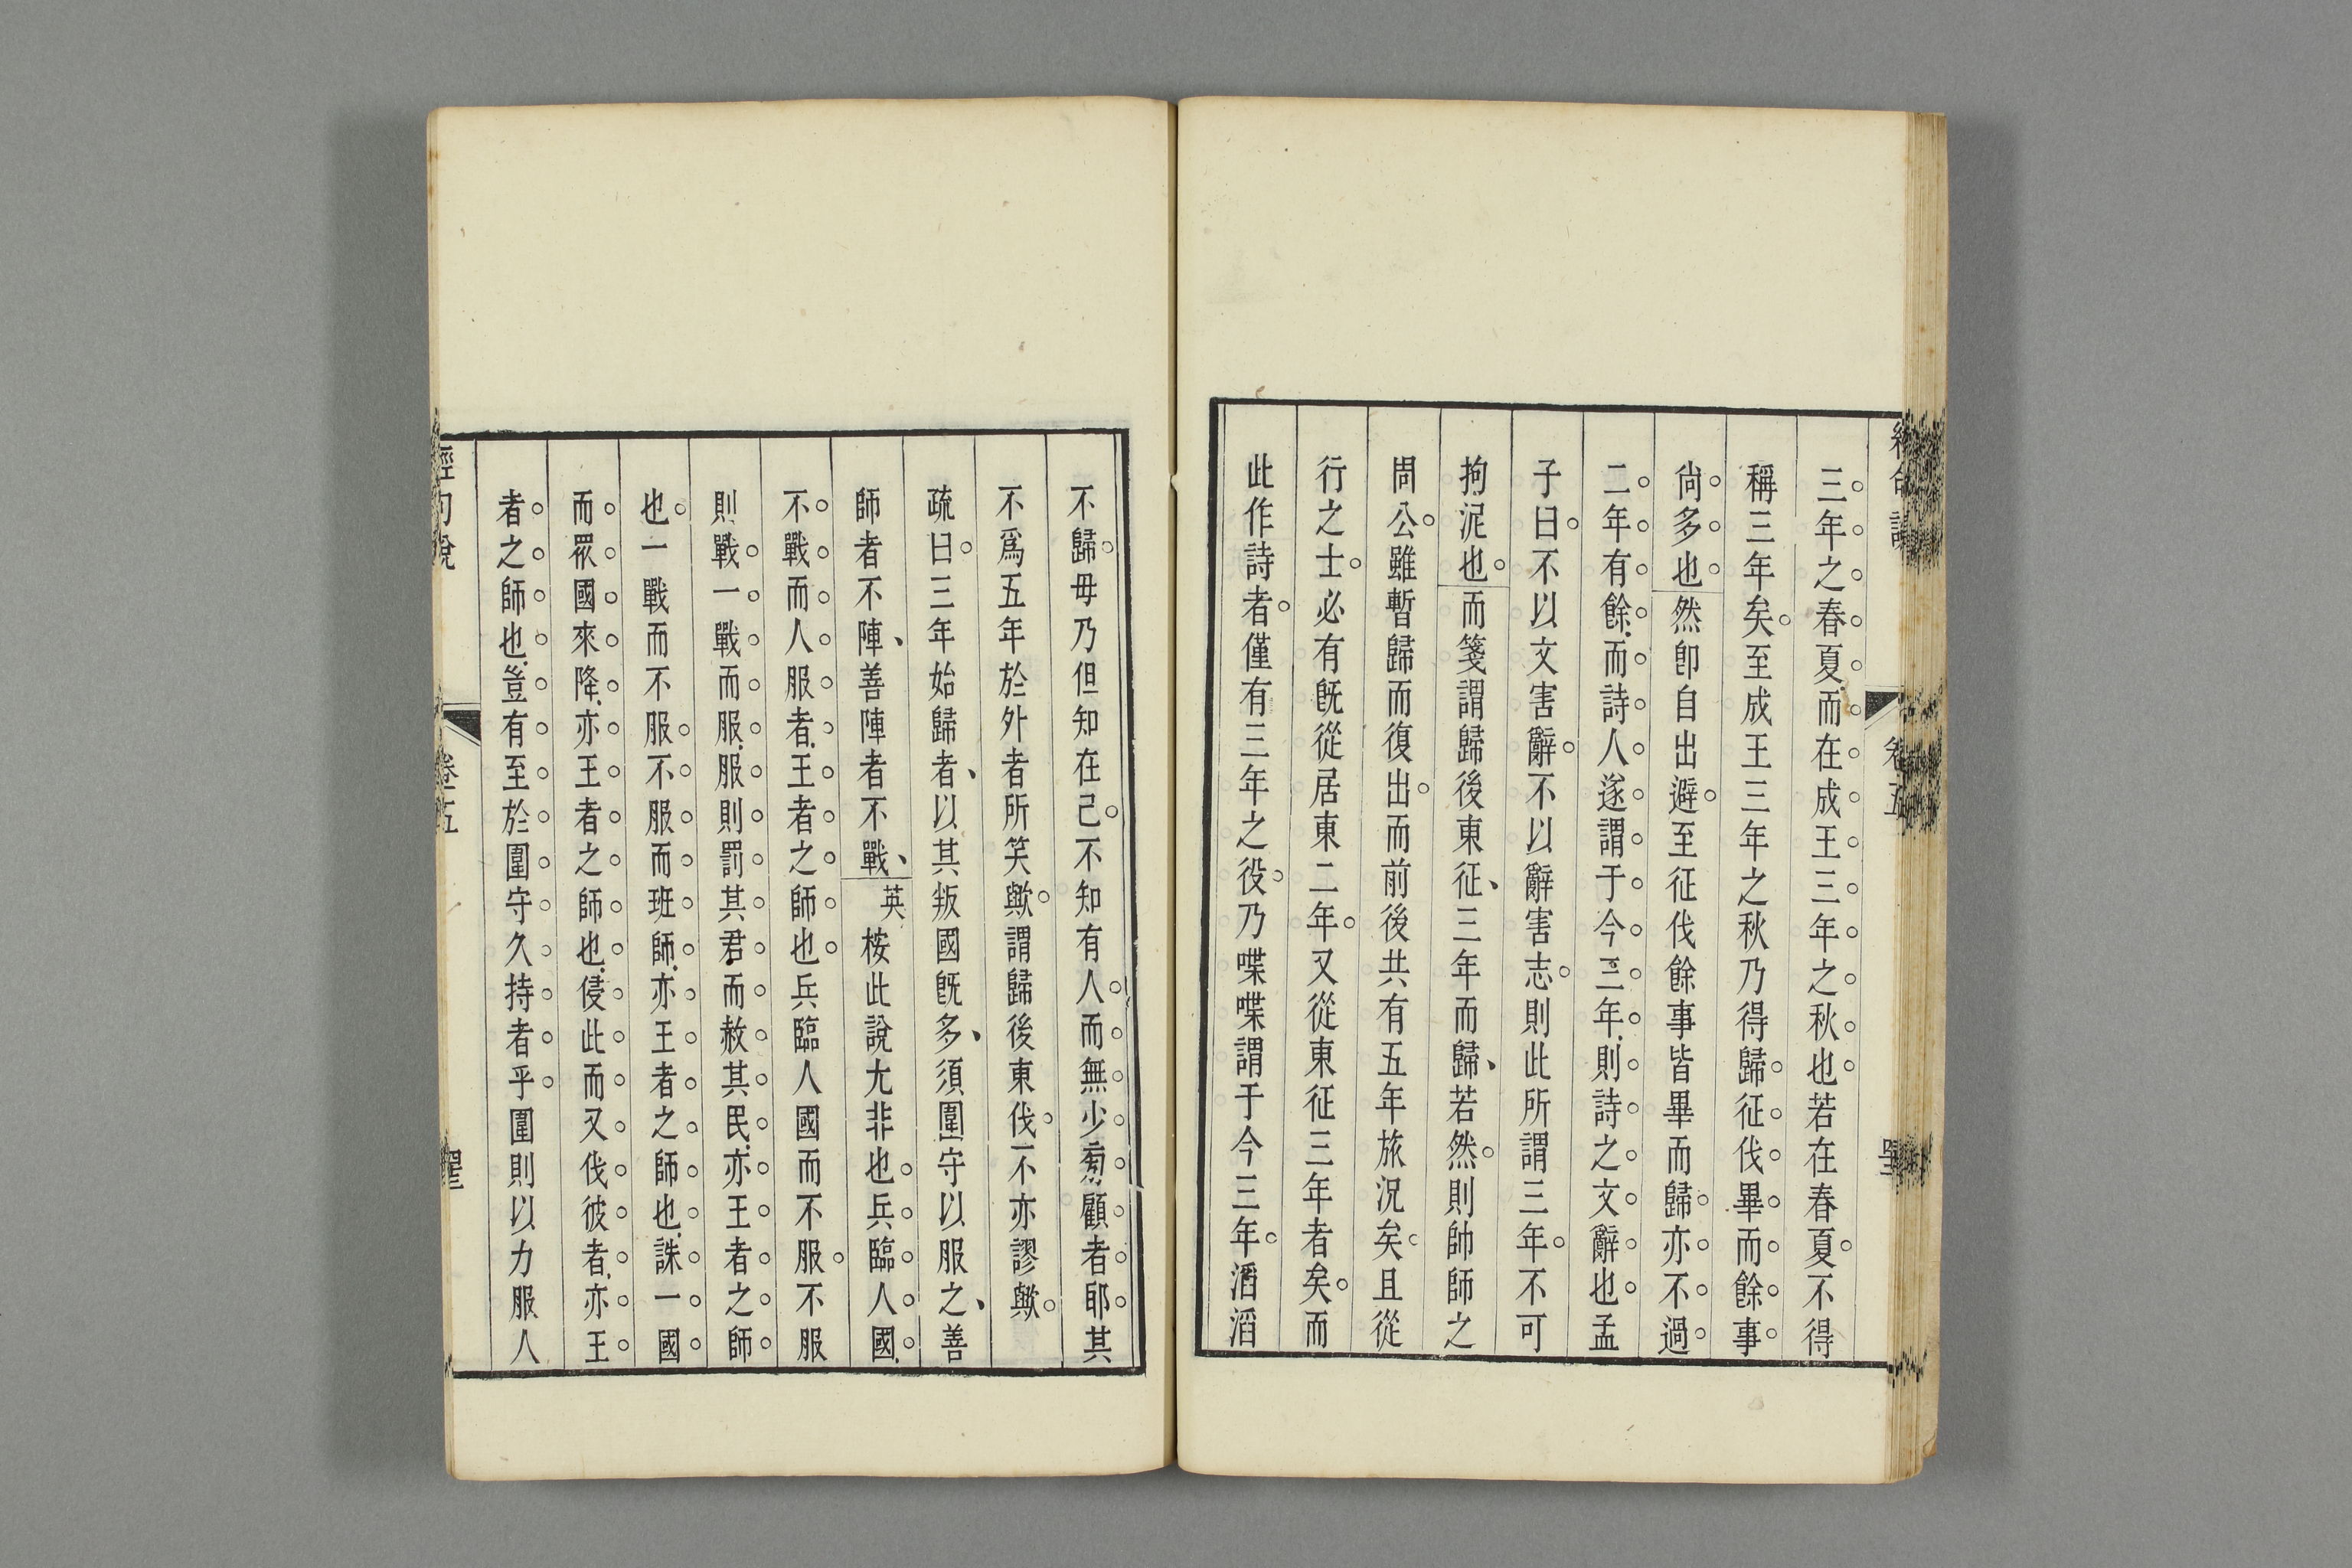 三年之春夏而在成王三年之秋也若在春夏不得
稱三年矣至成王三年之秋乃得歸征伐畢而餘事
尙多也然卽自出避至征伐餘事皆畢而歸亦不過
二年有餘而詩人遂謂于今三年則詩之文辭也孟
子曰不以文害辭不以辭害志則此所謂三年不可
拘泥也而箋謂歸後東征三年而歸若然則帥師之
周公雖暫歸而復出而前後共有五年旅況矣且從
行之士必有旣從居東二年又從東征三年者矣而
此作詩者僅有三年之役乃喋喋謂于今三年滔滔
不歸毋乃但知在己不知有人而無少顧者耶其
不爲五年於外者所笑歟謂歸後東伐不亦謬歟
疏曰三年始歸者以其叛國旣多須圍守以服之善
師者不陣善陣者不戰英桉此說尤非也兵臨人國
不戰而人服者王者之師也兵臨人國而不服不服
則戰一戰而服服則罰其君而赦其民亦王者之師
也一戰而不服不服而班師亦王者之師也誅一國
而眾國來降亦王者之師也侵此而又伐彼者亦王
者之師也豈有至於圍守久持者乎圍則以力服人
卷五